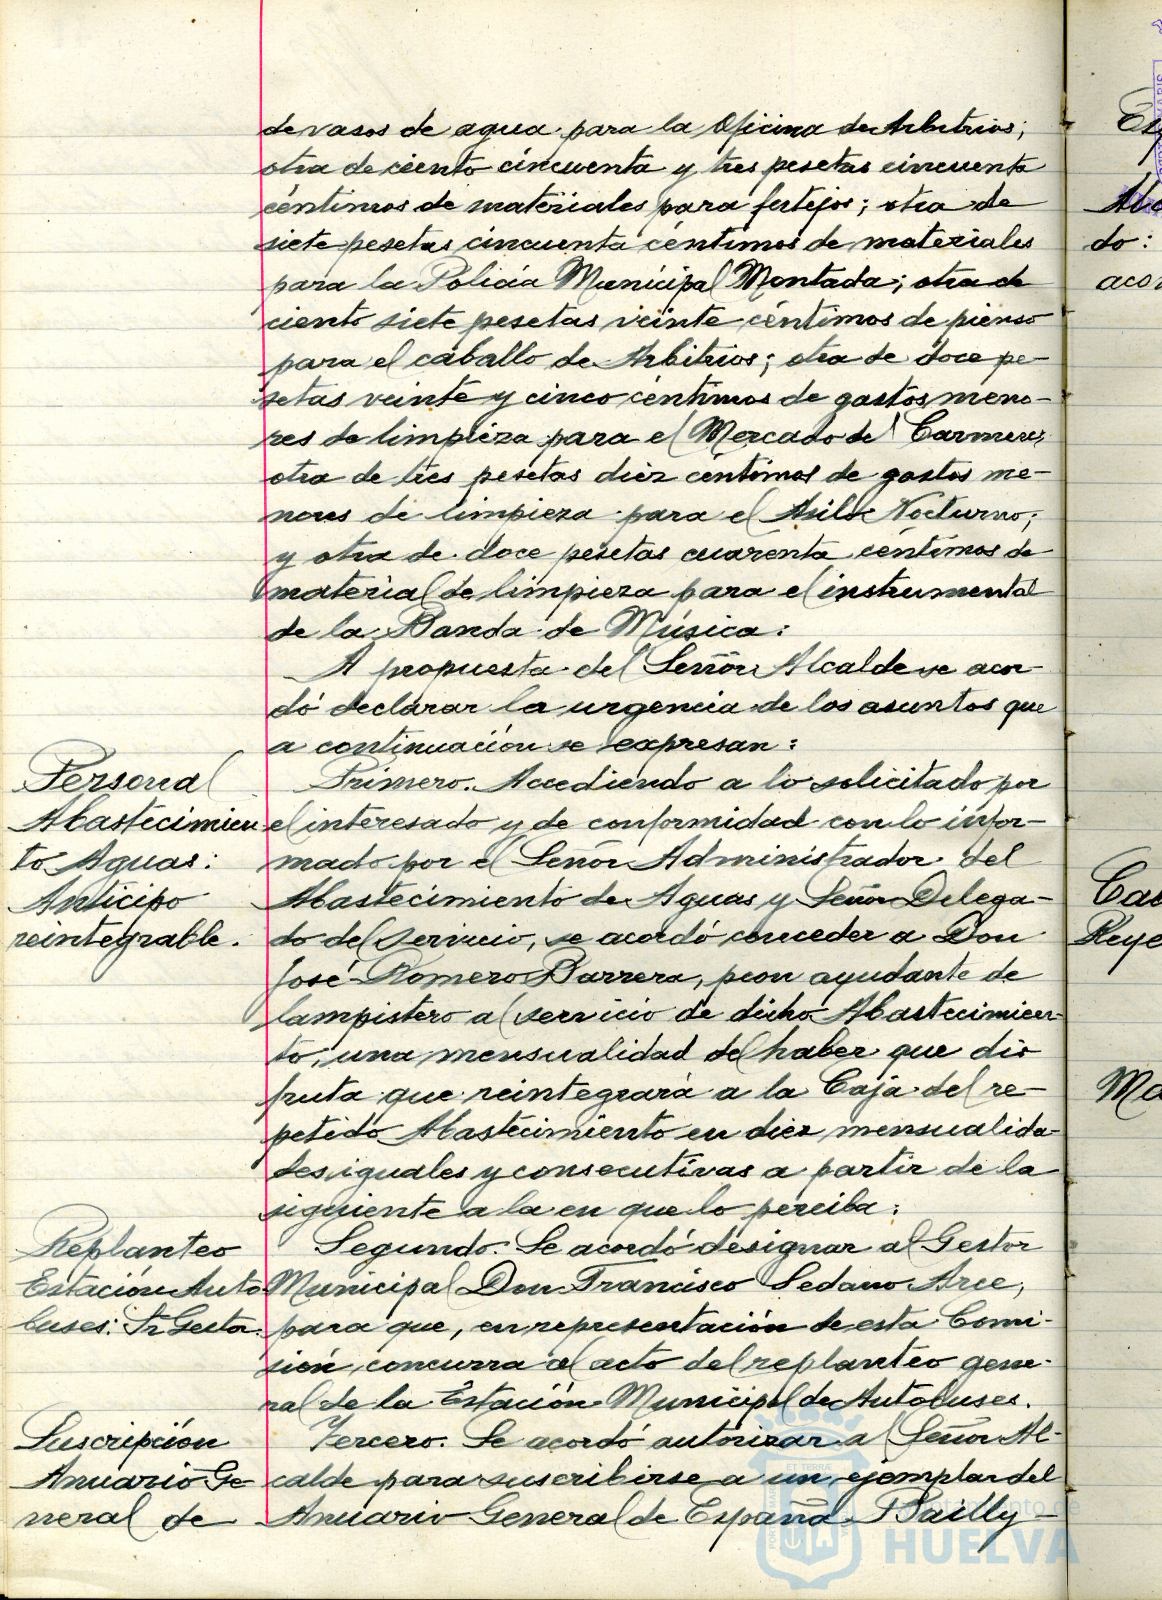 de vasos de agua para la Oficina de Arbitrios;
otra de ciento cincuenta y tres pesetas cincuenta
céntimos de materiales para festejos; otra de
siete pesetas cincuenta céntimos de materiales
para la Policía Municipal Montada; otra de
ciento siete pesetas veinte céntimos de pienso
para el caballo de Arbitrios; otra de doce pe-
setas veinte y cinco céntimos de gastos meno-
res de limpieza para el Mercado del Carmen;
otra de tres pesetas diez céntimos de gastos me-
nores de limpieza para el Asilo Nocturno;
y otra de doce pesetas cuarenta céntimos de
material de limpieza para el instrumental
de la Banda de Música:
A propuesta del Señor Alcalde se acor-
dó declarar la urgencia de los asuntos que
a continuación se expresan:
Personal
Abastecimien
to Aguas:
Anticipo
reintegrable.
Primero. Accediendo a lo solicitado por
el interesado y de conformidad con lo infor-
mado por el Señor Administrador del
Abastecimiento de Aguas y Señor Delega-
do del Servicio, se acordó conceder a Don
José Romero Barrera, peon ayudante de
lampistero al servicio de dicho Abastecimien-
to, una mensualidad del haber que dis
fruta que reintegrará a la Caja del re-
petido Abastecimiento en diez mensualida-
des iguales y consecutivas a partir de la
siguiente a la en que lo perciba:
Replanteo
Estación Auto
buses: Sr Gestor.
Segundo. Se acordó designar al Gestor
Municipal Don Francisco Sedano Arce,
para que, en representación de esta Comi-
sión concurra al acto del replanteo gene-
ral de la Estación Municipal de Autobuses.
Suscripción
Anuario Ge-
neral de
Tercero. Se acordó autorizar al Señor Al-
calde para suscribirse a un ejemplar del
Anuario General de España Bailly-
Ayuntamiento de
HUELVA